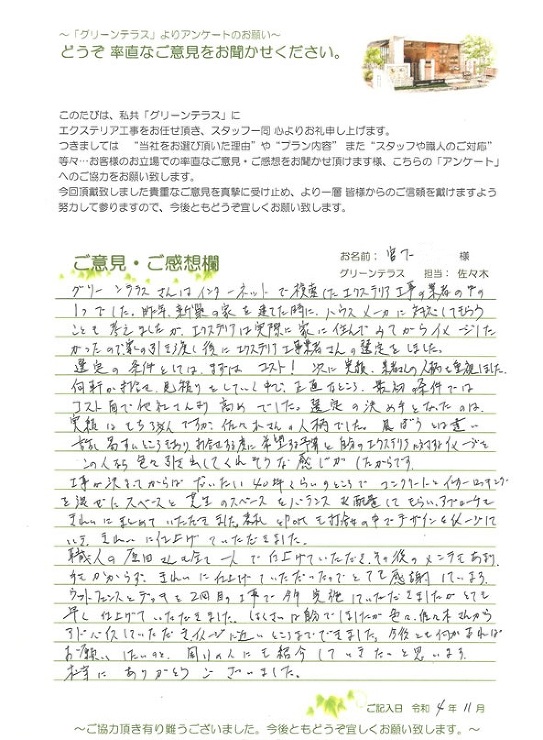 ～「グリーンテラス」よりアンケートのお願い～
どうぞ 率直なご意見をお聞かせください。
このたびは、私共「グリーンテラス」に
エクステリア工事をお任せ頂き、スタッフ一同 心よりお礼申し上げます。
つきましては　“当社をお選び頂いた理由”や“プラン内容”　また“スタッフや職人のご対応”
等々…お客様のお立場での率直なご意見・ご感想をお聞かせ頂けます様、こちらの「アンケート」
へのご協力をお願い致します。
今回頂戴致しました貴重なご意見を真摯に受け止め、より一層 皆様からのご信頼を戴けますよう
努力して参りますので、今後ともどうぞ宜しくお願い致します。
ご意見・ご感想欄
お名前：宮下 様
グリーンテラス　担当：佐々木
グリーンテラスさんはインターネットで検索したエクステリア工事の業者の中の
1つでした。昨年、新築の家を建てた時に、ハウスメーカーに対応してもらう
ことも考えましたが、エクステリアは実際に家に住んでみてからイメージした
かったので家の引き渡し後にエクステリア工事業者さんの選定をしました。
選定の条件としては、まずは コスト! 次に実績、業者さんの人柄を重視しました。
何軒か打合せ、見積りをしていく中で、正直なところ、最初の条件では
コスト面で他社てんより高めでした。選定の決め手となったのは、
実績はもちろんですが、佐々木さんの人柄でした。
この人なら色々引き出してくれそうな感じがしたからです。
工事が決まってからは だいたい40坪くらいのところで コンクリートとインターロッキング
を混ぜたスペースと芝生のスペースをバランス良く配置してもらい、アプローチも
きれいにまとめていただきました。
きれいに仕上げていただきました。
職人の原田さんも全て一人で仕上げていただき、その後のメンテもあまり
手がかからず、きれいに仕上げていただいたのでとても感謝しています。
ウッドフェンスとデッキを2回目の工事で今年実施していただきましたがとても
早く仕上げていただきました。 色々、佐々木さんから
アドバイスしていただき、イメージに近いところまでできました。今後とも何かあれば
お願いしたいのと、周りの人にも紹介していきたいと思います。
本当に ありがとう ございました。
ご記入日 令和 4 年 11 月
～ご協力頂き有り難うございました。今後ともどうぞ宜しくお願い致します。～